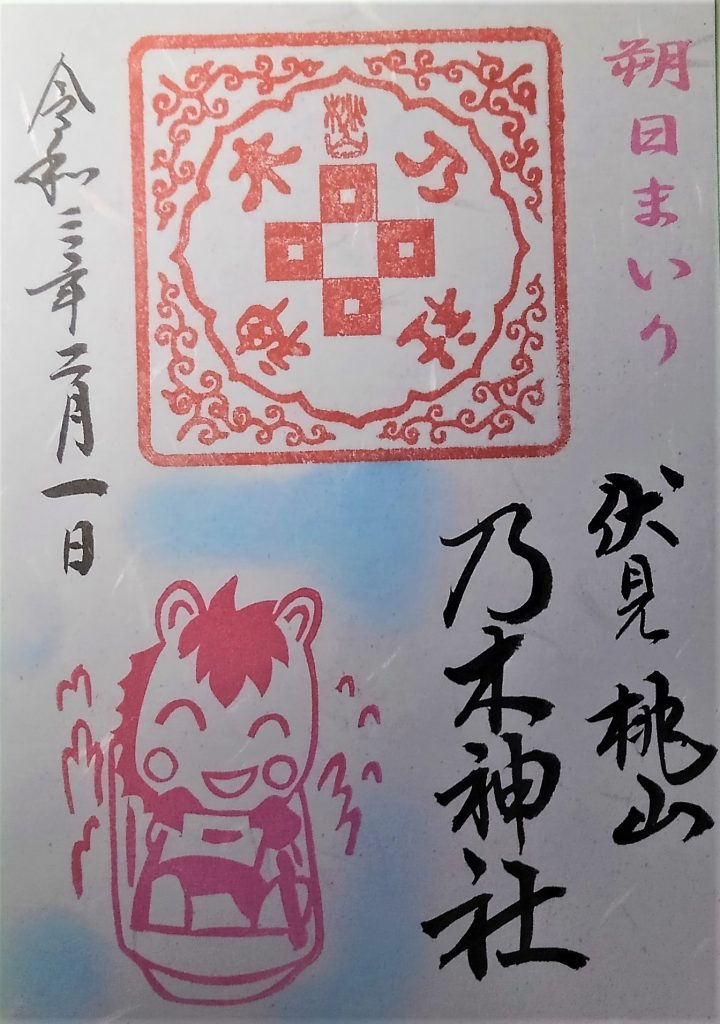 朔日まいり
伏見桃山
乃木神社
桃山
乃木
神社
令和三年二月一日